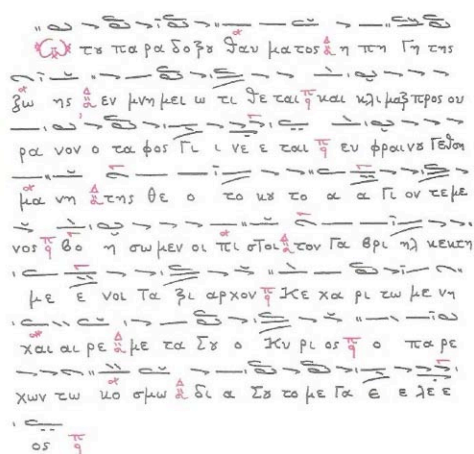 Ω τȣ πα ρα δο ξȣ θαυ μα τος η πη Γη της
ζω ης εν μνη μει ω τι θε ται και κλι μαξ προς ου
ρα νον ο τα φος Γι ι νε ε ται ευ φραι νȣ Γεθση
μα νη της θε ο το κȣ το α α Γι ον τε με
νος βο η σω μεν οι πι στοι τον Γα βρι ηλ κεκτη
με ε νοι Τα ξι αρχον Κε χα ρι τω με νη
χαι αι ρε με τα Σȣ ο Κυ ρι ος ο πα ρε
χων τω κο σμω δι α Σȣ το με Γα ε ε λε ε
ος